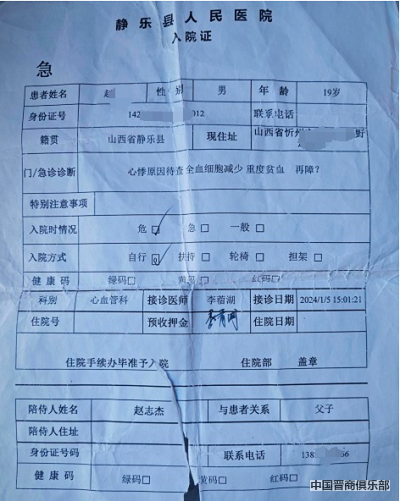 静乐县人民医院
入院证
急
患者姓名 赵 性别 男 年龄 19岁
身份证号 142 012 联系电话
籍贯 山西省静乐县 现住址 山西省忻州 野
门/急诊诊断 心悸原因待查 全血细胞减少 重度贫血 再障？
特别注意事项
入院时情况 危□ 急□ 一般□
入院方式 自行□ 扶持□ 轮椅□ 担架□
健康码 绿码□ 黄码□ 红码□
科别 心血管科 接诊医师 李蓿湖 接诊日期 2024/1/5 15:01:21
住院号 预收押金 住院日期
住院手续办毕准予入院 住院部 盖章
陪侍人姓名 赵志杰 与患者关系 父子
陪侍人住址
身份证号码 联系电话 138 66
健康码 绿码□ 黄码□ 红码□
中国晋商俱乐部